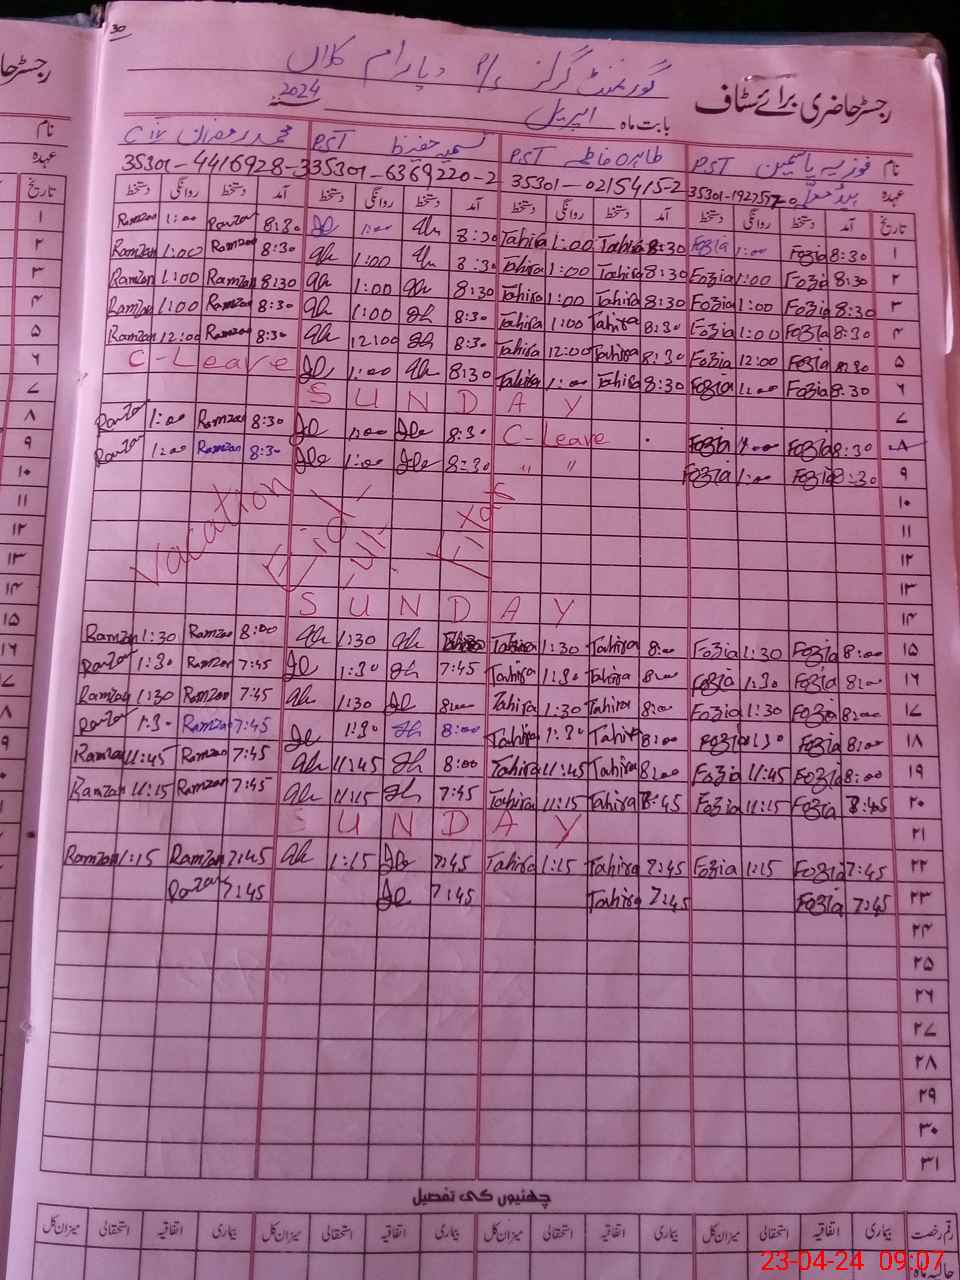 30
رجسٹر حاضری برائے سٹاف
گورنمنٹ گرلز P/S دیا رام کلاں
بابت ماہ اپریل سنہ 2024
نام فوزیہ یاسمین PST طاہرہ فاطمہ PST PST محمد رمضان C IV
عہدہ 35301-0215415-2 35301-6369220-2 35301-4416928-3
تاریخ آمد دستخط روانگی دستخط آمد دستخط روانگی دستخط آمد دستخط روانگی دستخط آمد دستخط روانگی دستخط
۱ 8:30 Fozia 1:00 Fozia 8:30 Tahira 1:00 Tahira 8:30 1:00 8:30 Ramzan 1:00 Ramzan
۲ 8:30 Fozia 1:00 Fozia 8:30 Tahira 1:00 Tahira 8:30 1:00 8:30 Ramzan 1:00 Ramzan
۳ 8:30 Fozia 1:00 Fozia 8:30 Tahira 1:00 Tahira 8:30 1:00 8:30 Ramzan 1:00 Ramzan
۴ 8:30 Fozia 1:00 Fozia 8:30 Tahira 1:00 Tahira 8:30 1:00 8:30 Ramzan 1:00 Ramzan
۵ 8:30 Fozia 12:00 Fozia 8:30 Tahira 12:00 Tahira 8:30 12:00 8:30 Ramzan 12:00 Ramzan
۶ 8:30 Fozia 1:00 Fozia 8:30 Tahira 1:00 Tahira 8:30 1:00 C-Leave
۷ SUNDAY
۸ 8:30 Fozia 1:00 Fozia C-Leave 8:30 1:00 8:30 Ramzan 1:00 Ramzan
۹ 8:30 Fozia 1:00 Fozia " " 8:30 1:00 8:30 Ramzan 1:00 Ramzan
۱۰
۱۱
Vacation Eid-ul-Fitar
۱۲
۱۳
۱۴ SUNDAY
۱۵ 8:00 Fozia 1:30 Fozia 8:00 Tahira 1:30 Tahira 1:30 8:00 Ramzan 1:30 Ramzan
۱۶ 8:00 Fozia 1:30 Fozia 8:00 Tahira 1:30 Tahira 7:45 1:30 7:45 Ramzan 1:30 Ramzan
۱۷ 8:00 Fozia 1:30 Fozia 8:00 Tahira 1:30 Tahira 8:00 1:30 7:45 Ramzan 1:30 Ramzan
۱۸ 8:00 Fozia 1:30 Fozia 8:00 Tahira 1:30 Tahira 8:00 1:30 7:45 Ramzan 1:30 Ramzan
۱۹ 8:00 Fozia 11:45 Fozia 8:00 Tahira 11:45 Tahira 8:00 11:45 7:45 Ramzan 11:45 Ramzan
۲۰ 7:45 Fozia 11:15 Fozia 7:45 Tahira 11:15 Tahira 7:45 11:15 7:45 Ramzan 11:15 Ramzan
۲۱ SUNDAY
۲۲ 7:45 Fozia 1:15 Fozia 7:45 Tahira 1:15 Tahira 7:45 1:15 7:45 Ramzan 1:15 Ramzan
۲۳ 7:45 Fozia 7:45 Tahira 7:45 7:45 Ramzan
۲۴
۲۵
۲۶
۲۷
۲۸
۲۹
۳۰
۳۱
چھٹیوں کی تفصیل
رقم رخصت بیماری اتفاقیہ استحقاقی میزان کل بیماری اتفاقیہ استحقاقی میزان کل بیماری اتفاقیہ استحقاقی میزان کل بیماری اتفاقیہ استحقاقی میزان کل
حالیہ ماہ:
23-04-24 09:07